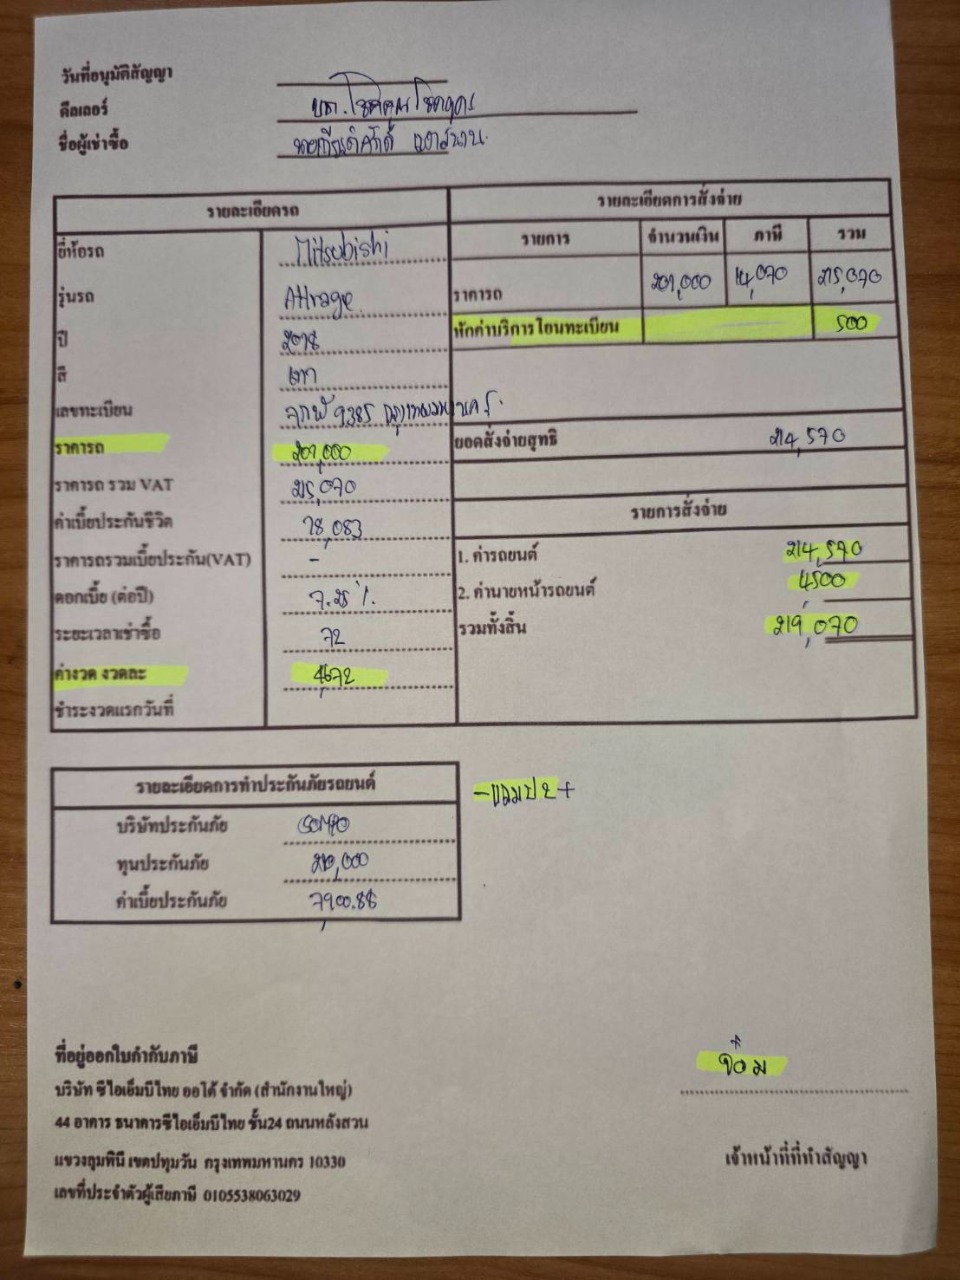 วันที่อนุมัติสัญญา
ดีลเลอร์ บจก.
ชื่อผู้เช่าซื้อ
รายละเอียดรถ
ยี่ห้อรถ Mitsubishi
รุ่นรถ Attrage
ปี 2018
สี เทา
เลขทะเบียน 9385 กรุงเทพมหานคร
ราคารถ 201,000
ราคารถ รวม VAT 215,070
ค่าเบี้ยประกันชีวิต 18,083
ราคารถรวมเบี้ยประกัน(VAT) -
ดอกเบี้ย (ต่อปี) 7.25 %
ระยะเวลาเช่าซื้อ 72
ค่างวด งวดละ 4,672
ชำระงวดแรกวันที่
รายละเอียดการสั่งจ่าย
รายการ จำนวนเงิน ภาษี รวม
ราคารถ 201,000 14,070 215,070
หักค่าบริการโอนทะเบียน 500
ยอดสั่งจ่ายสุทธิ 214,570
รายการสั่งจ่าย
1. ค่ารถยนต์ 214,570
2. ค่านายหน้ารถยนต์ 4,500
รวมทั้งสิ้น 219,070
รายละเอียดการทำประกันภัยรถยนต์
บริษัทประกันภัย SOMPO
ทุนประกันภัย 210,000
ค่าเบี้ยประกันภัย 7,900.88
-แถมป 2+
ที่อยู่ออกใบกำกับภาษี
บริษัท ซีไอเอ็มบีไทย ออโต้ จำกัด (สำนักงานใหญ่)
44 อาคาร ธนาคารซีไอเอ็มบีไทย ชั้น24 ถนนหลังสวน
แขวงลุมพินี เขตปทุมวัน กรุงเทพมหานคร 10330
เลขที่ประจำตัวผู้เสียภาษี 0105538063029
เจ้าหน้าที่ที่ทำสัญญา